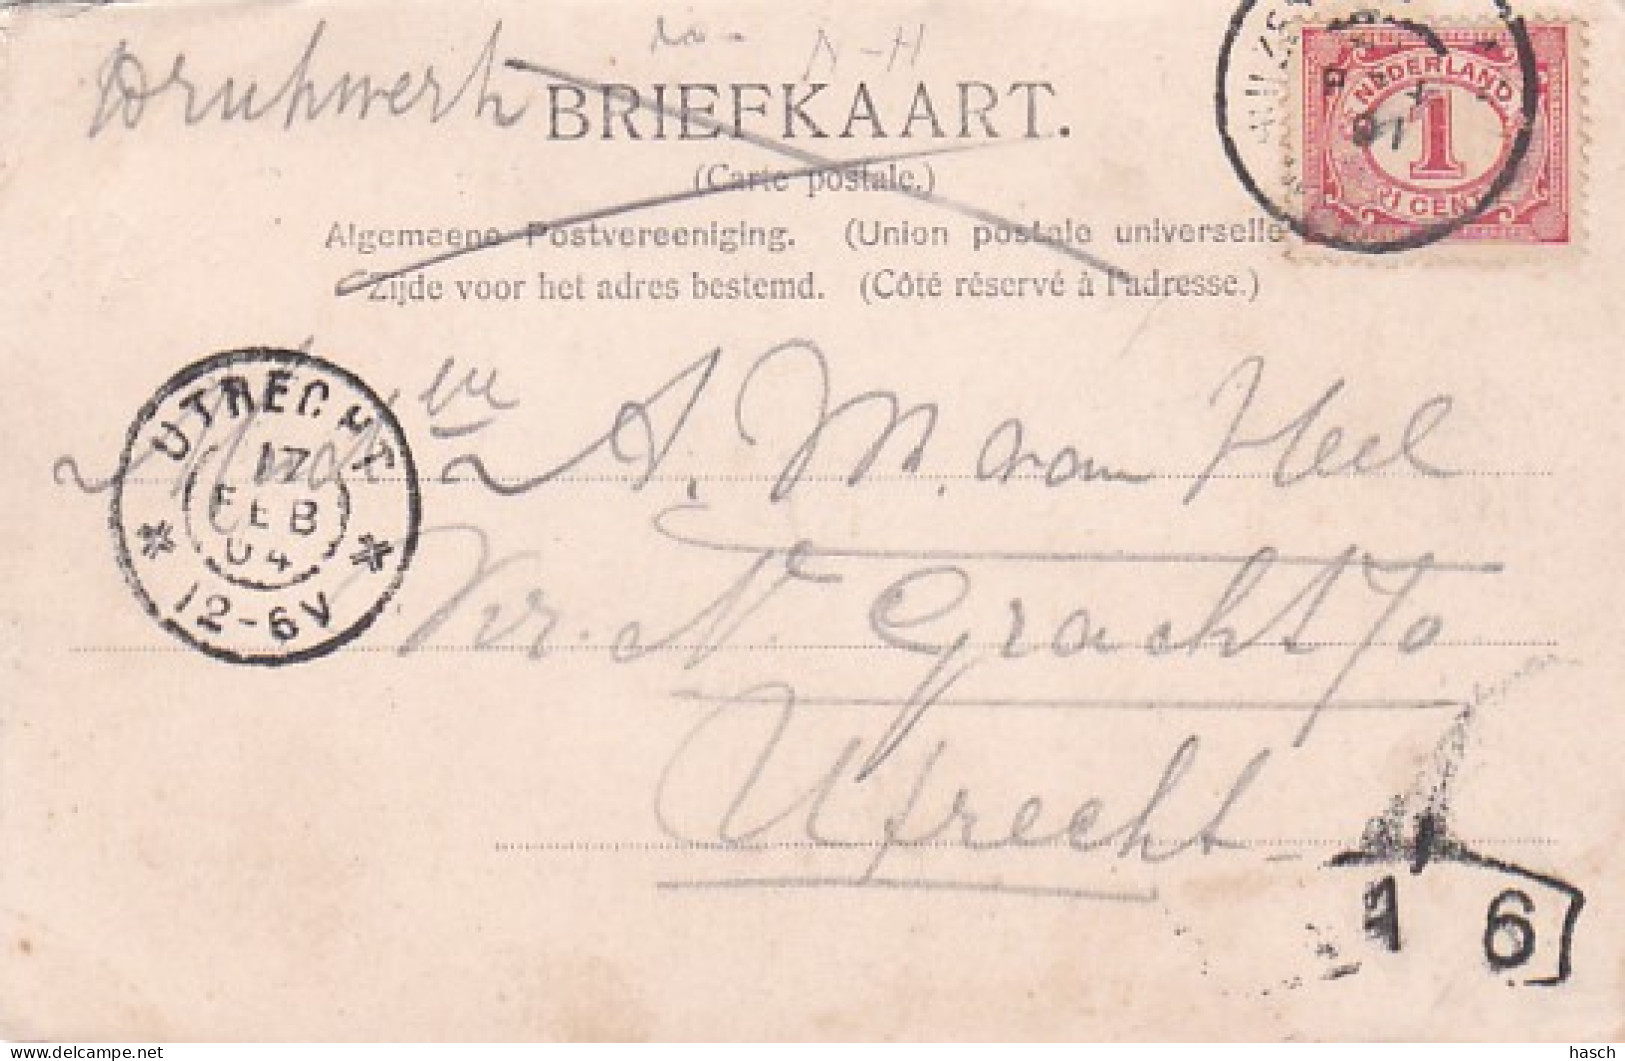 Drukwerk
N-H
BRIEFKAART.
(Carte postale.)
Algemeene Postvereeniging. (Union postale universelle
Zijde voor het adres bestemd. (Côté réservé à l'adresse.)
NEDERLAND
1
CENT
UTRECHT
17
FEB
04
12-6V
A. M. van Heel
Kr. N. Gracht 70
Utrecht
1 6
hasch